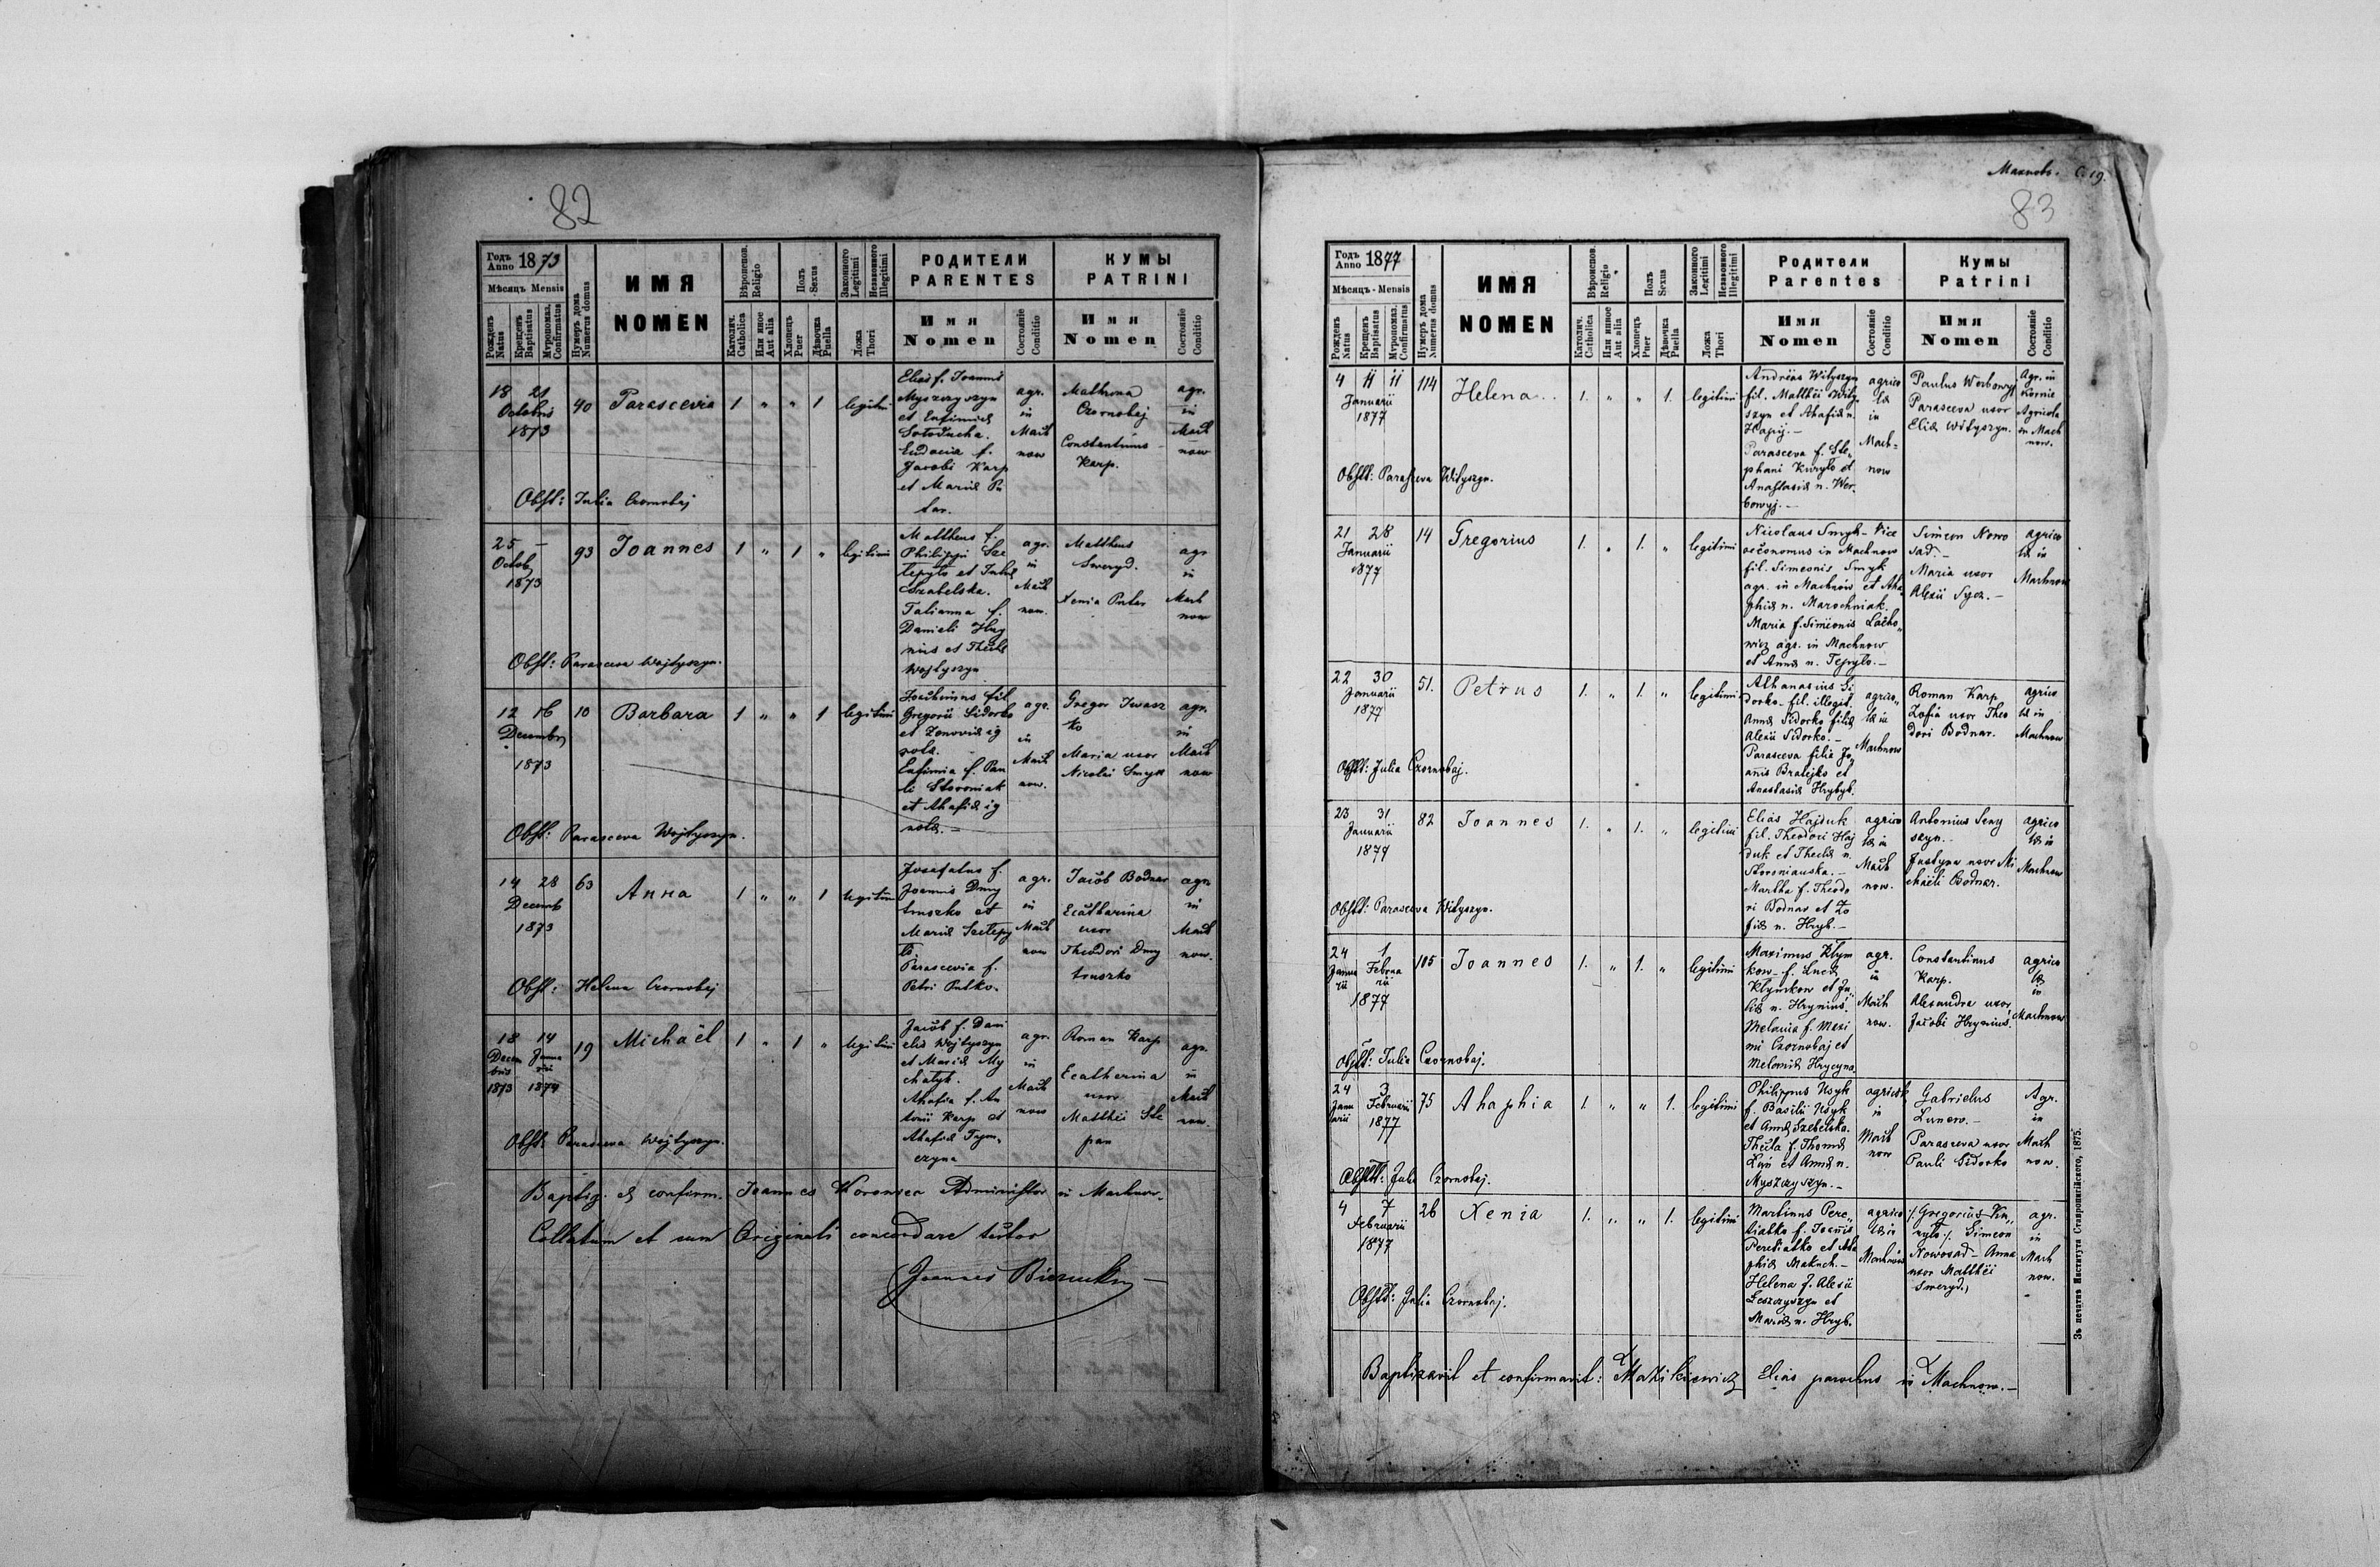 82
Годъ Anno 1873
Мѣсяцъ Mensis
Рожденъ Natus
Крещенъ Baptisatus
Мѵропомаз. Confirmatus
Нумеръ дома Numerus domus
ИМЯ
NOMEN
Вѣроисповѣд. Religio
Католич. Catholica
Или иное Aut alia
Полъ Sexus
Хлопецъ Puer
Дѣвочка Puella
Законного Legitimi
Незаконного Illegitimi
Ложа Thori
РОДИТЕЛИ
PARENTES
Имя
Nomen
Состояніе Conditio
КУМЫ
PATRINI
Имя
Nomen
Состояніе Conditio
18 21
Octobris
1873
40
Parascevia
1 " " 1
legitimi
Elias f. Joannis
Myszczyszyn
et Eufimiæ
Sołoducha.
Eudocia f.
Jacobi Karp
et Mariæ Pu
tar.
agr.
in
Mach
now
Mathrona
Czornobaj
Constantinus
Karp.
agr.
in
Mach
now
Obst: Julia Czornobaj
25 —
Octob
1873
93
Joannes
1 " 1 "
legitimi
Mattheus f.
Philippi Sze
Szabelska.
Tatianna f.
Danieli Hry
nius et Theclæ
Wojtyszyn
agr.
in
Mach
now.
Mattheus
Sweryd.
Xenia Putar
agr
in
Mach
now
Obst: Parasceva Wojtyszyn.
12 16
Decembr
1873
10
Barbara
1 " " 1
legitimi
Joachimus fil
Gregorii Sidorko
et Zenoviæ ig
notæ.
Eufimia f. Pau
li Storoniak
et Ahafiæ ig
notæ. —
agr.
in
Mach
now.
Gregor Iwasz
ko
Maria uxor
Nicolai Smyk
agr.
in
Mach
now
Obst: Parasceva Wojtyszyn.
14 28
Decemb
1873
63
Anna
1 " " 1
legitim
Josafatus f.
Joannis Dmy
truszko et
Mariæ Szelepy
ło.
Parascevia f.
Petri Putko.
agr.
in
Mach
now
Jacob Bodnar
Ecatharina
uxor
Theodori Dmy
truszko
agr.
in
Mach
now.
Obst: Helena Czornobaj
18 14
Decem Janua
bris rii
1873 1874
19
Michaël
1 " 1 "
legitimi
Jacob f. Dani
elis Wojtyszyn
et Mariæ My
chałyk.
Ahafia f. An
tonii Karp et
Ahafiæ Tym
czyna
agr.
in
Mach
now
Roman Karp
Ecatherina
uxor
Matthëi Ste
pan
agr.
in
Mach
now
Obst: Parasceva Wojtyszyn.
Baptiz. et confirm. Joannes Koroniec Administor in Machnow.
Collatum et cum Originali concordare testor
Joannes
Махновъ. C. 19.
83
Годъ Anno 1877
Мѣсяцъ - Mensis
Рожденъ Natus
Крещенъ Baptisatus
Мѵропомаз. Confirmatus
Нумеръ дома Numerus domus
ИМЯ
NOMEN
Вѣроисповѣд. Religio
Католич. Catholica
Или иное Aut alia
Полъ Sexus
Хлопецъ Puer
Дѣвочка Puella
Законного Legitimi
Незаконного Illegitimi
Ложа Thori
Родители
Parentes
Имя
Nomen
Состояніе Conditio
Кумы
Patrini
Имя
Nomen
Состояніе Conditio
4 11 11
Januarii
1877
114
Helena
1. " " 1.
legitimi
Andreas Wityszyn
fil. Matthëi Wity
szyn et Ahafiæ n.
Parasceva f. Ste
phani Kuryło et
Anastasiæ n. Wer
bowyj. —
agrico
læ
in
Mach=
now
Paulus Werbowyj
Parasceva uxor
Eliæ Wityszyn.
Agr. in
Kornie
Agricola
in Mach
now.
Obstt: Parasceva Wityszyn.
21 28
Januarii
1877
14
Gregorius
1. " 1. "
legitimi
Nicolaus Smyk – Vice
oeconomus in Machnow
fil. Simeonis Smyk
agr. in Machnow et Aha
phiæ n. Marochniak.
Maria f. Simeonis Lacho
wicz agr. in Machnow
et Annæ n. Tepyło. —
Simeon Nowo
sad. —
Maria uxor
Alexii Sycz. —
agrico
læ in
Machnow
22 30
Januarii
1877
51.
Petrus
1. " 1. "
legitimi
Athanasius Si
dorko – fil. illegit.
Annæ Sidorko filiæ
Alexii Sidorko. —
Parasceva filia Jo
annis Bratejko et
Anastasiæ
agrico
læ in
Machnow
Roman Karp
Zofia uxor Theo
dori Bodnar.
agrico
læ in
Machnow
Obstt: Julia Czornobaj.
23 31
Januarii
1877
82
Joannes
1. " 1. "
legitimi
Elias Hajduk
fil. Theodori Haj
duk et Theclæ n.
Storonianska. —
Martha f. Theodo
ri Bodnar et Zo
fiæ n. Hryb. —
agrico
læ in
Mach
now.
Antonius Seny
szyn. —
Justyna uxor Mi
chaëli Bodnar.
agrico
læ in
Machnow
Obstt: Parasceva Wityszyn.
24 1
Janua Februa
rii rii
1877
105
Joannes
1. " 1. "
legitimi
Maximus Klym
kow – f. Lucæ
Klymkow et Ju
liæ n. Hrynius.
Melania f. Maxi
mi Czornobaj et
Melaniæ Hrycyna.
agr.
in
Mach
now.
Constantinus
Karp.
Alexandra uxor
Jacobi Hrynius.
agrico
læ
in
Machnow
Obstt: Julia Czornobaj.
24 3
Janu Februarii
arii 1877
75
Ahaphia
1. " " 1.
legitimi
Philippus Usyk
f. Basilii Usyk
et Annæ Szebelska.
Thecla f. Thomæ
et Annæ n.
Myszczyszyn. —
agricolæ
in
Mach
now
Gabrielus
Lunew. —
Parasceva uxor
Pauli Sidorko
Agr.
in
Mach
now.
Obstt: Julia Czornobaj.
4 7
Februarii
1877
26
Xenia
1. " " 1.
legitimi
Martinus Pere
tiatko f. Joannis
Peretiatko et Aha
phiæ Makuch. —
Helena f. Alexii
Leszczyszyn et
Mariæ n. Hryb.
agrico
læ in
Machnow
Simeon
Nowosad – Anna
uxor Matthëi
Sweryd.
agr.
in
Mach
now.
Obstt: Julia Czornobaj.
Baptizavit et confirmavit: Mazikiewicz Elias parochus in Machnow. —
Зъ печатнѣ Института Ставропигійского, 1875.